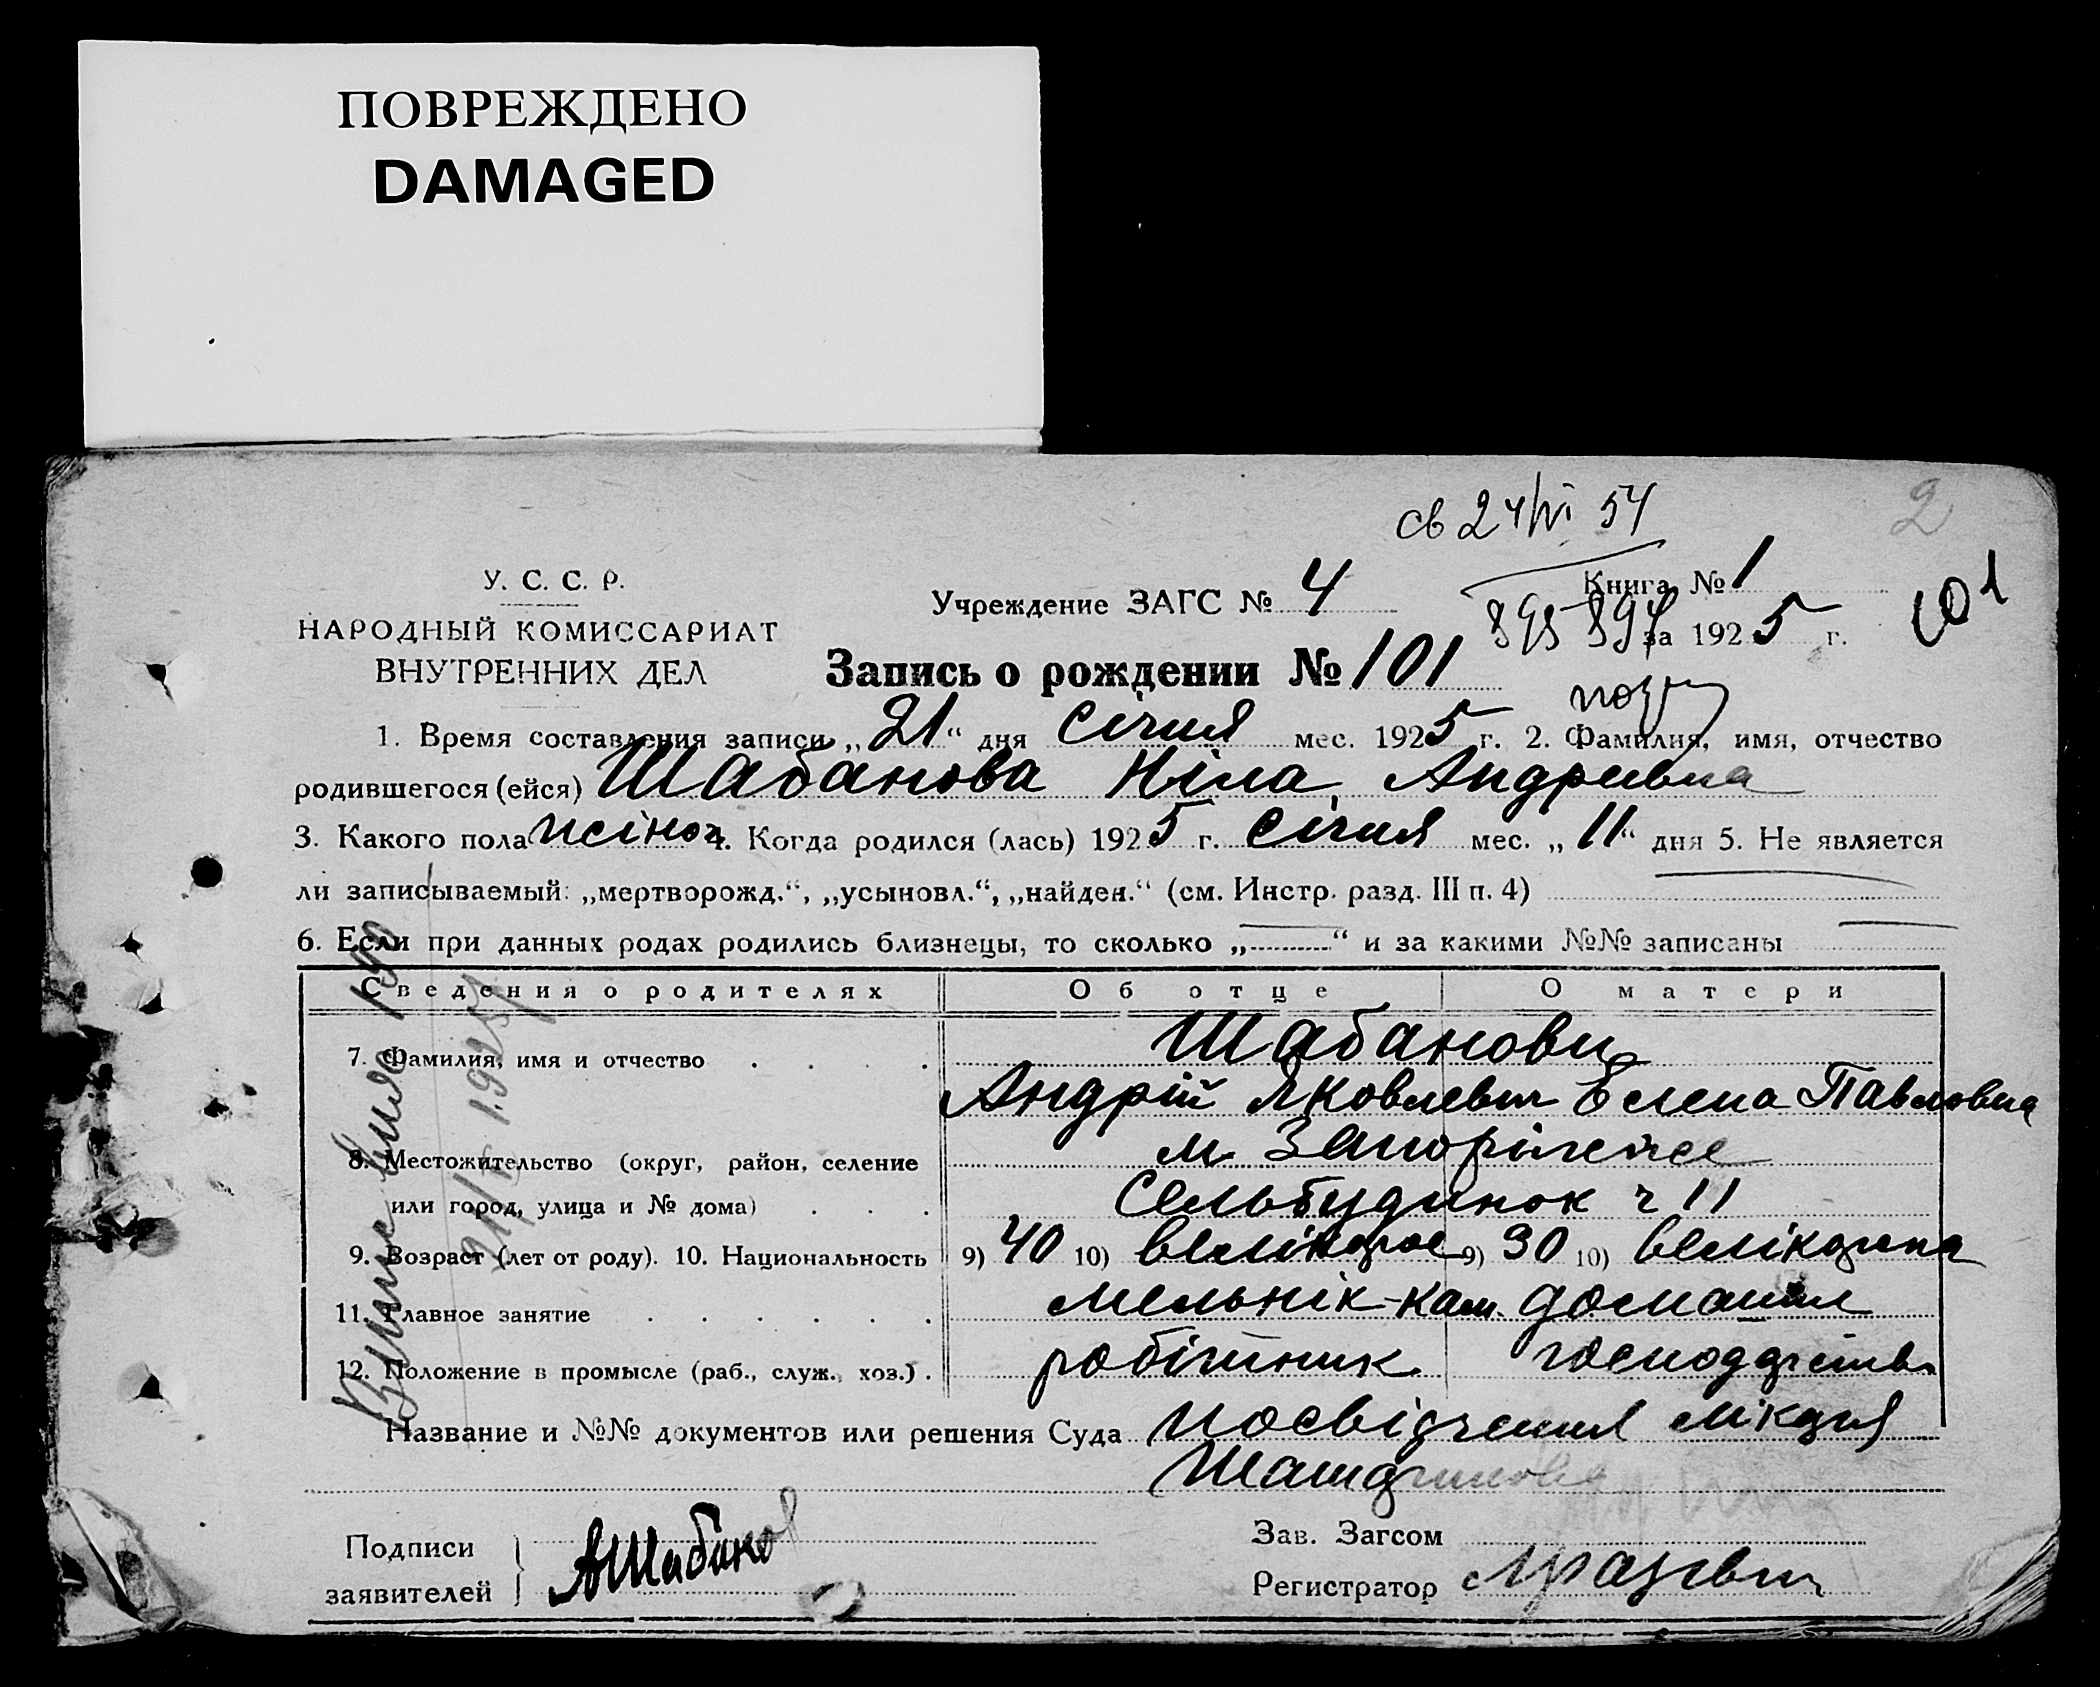 ПОВРЕЖДЕНО
DAMAGED
св 24/VI 54
2
У. С. С. Р.
НАРОДНЫЙ КОМИССАРИАТ
ВНУТРЕННИХ ДЕЛ
Учреждение ЗАГС № 4
Книга № 1
за 1925 г.
101
Запись о рождении № 101
1. Время составления записи „21“ дня січня мес. 1925 г. 2. Фамилия, имя, отчество
родившегося (ейся) Шабанова Ніна Андреевна
3. Какого пола жіноч 4. Когда родился (лась) 1925 г. січня мес. „11“ дня 5. Не является
ли записываемый: „мертворожд.“, „усыновл.“, „найден.“ (см. Инстр. разд. III п. 4)
6. Если при данных родах родились близнецы, то сколько „ “ и за какими №№ записаны
Сведения о родителях Об отце О матери
7. Фамилия, имя и отчество Шабанови
Андрій Яковлевич Елена Павловна
8. Местожительство (округ, район, селение м Запоріжже
или город, улица и № дома) Сельбудинок ч 11
9. Возраст (лет от роду). 10. Национальность 9) 40 10) 9) 30 10)
11. Главное занятие мельнік-кам. домашнє
12. Положение в промысле (раб., служ., хоз.) робітник
Название и №№ документов или решения Суда посвідчення лікаря
Подписи
заявителей АШабанов
Зав. Загсом
Регистратор